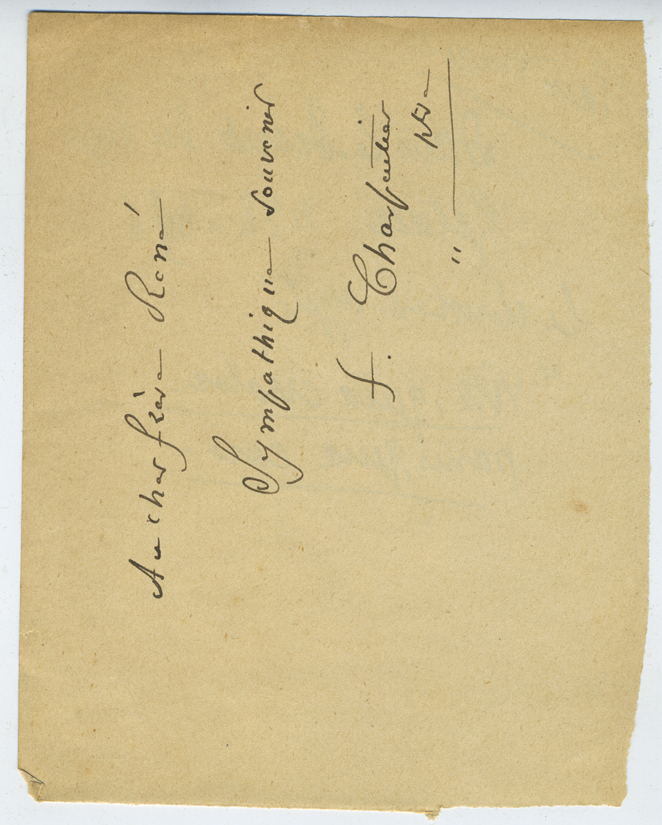 Au cher frère René
Sympathique souvenir
f. Charpentier
ptre
"